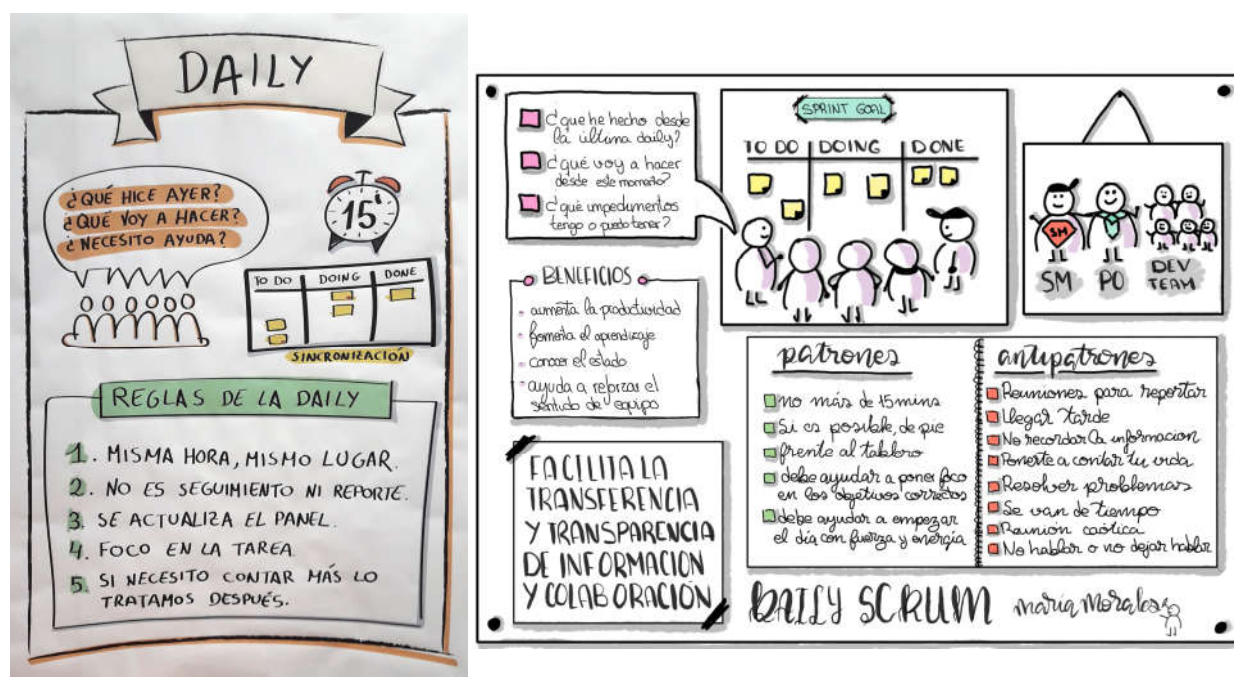 DAILY
¿QUÉ HICE AYER?
¿QUÉ VOY A HACER?
¿NECESITO AYUDA?
15'
TO DO
DOING
DONE
SINCRONIZACIÓN
REGLAS DE LA DAILY
1. MISMA HORA, MISMO LUGAR.
2. NO ES SEGUIMIENTO NI REPORTE.
3. SE ACTUALIZA EL PANEL.
4. FOCO EN LA TAREA.
5. SI NECESITO CONTAR MÁS LO
TRATAMOS DESPUÉS.
¿que he hecho desde
la última daily?
¿qué voy a hacer
desde este momento?
¿qué impedimentos
tengo o puedo tener?
SPRINT GOAL
TO DO
DOING
DONE
SM
SM
PO
DEV
TEAM
BENEFICIOS
aumenta la productividad
fomenta el aprendizaje
conocer el estado
ayuda a reforzar el
sentido de equipo
FACILITA LA
TRANSFERENCIA
Y TRANSPARENCIA
DE INFORMACION
Y COLABORACIÓN
patrones
no más de 15 mins
Si es posible, de pie
frente al tablero
debe ayudar a poner foco
en los objetivos correctos
debe ayudar a empezar
el día con fuerza y energía
antipatrones
Reuniones para reportar
Llegar tarde
No recordar la informacion
Ponerte a contar tu vida
Resolver problemas
Se van de tiempo
Reunión caótica
No hablar o no dejar hablar
DAILY SCRUM
maria morales